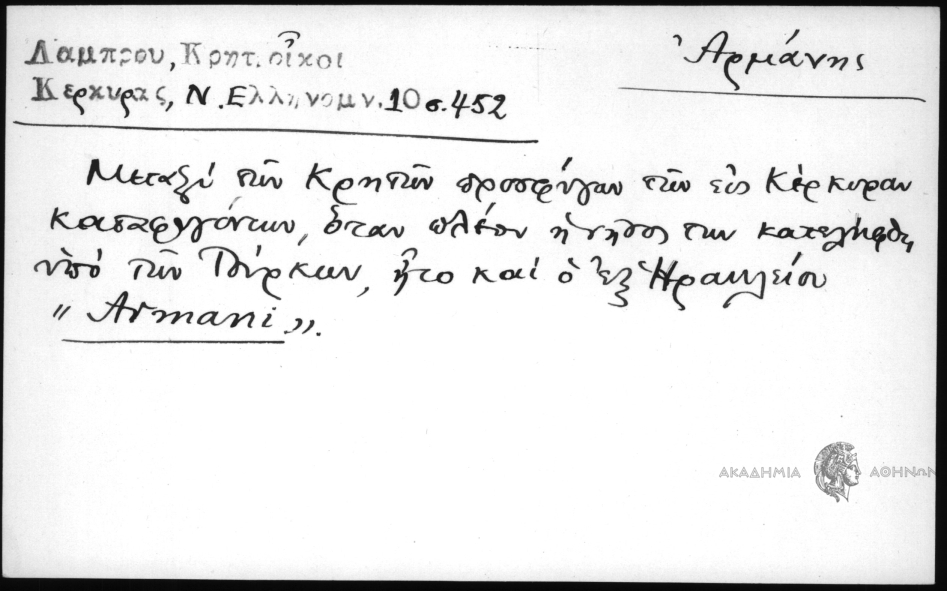 Λαμπρου, Κρητ. οἶκοι
Κερκυρας, Ν. Ελληνομν. 10 σ. 452
Ἀρμάνης
Μεταξύ τῶν Κρητῶν προσφύγων τῶν εἰς Κέρκυραν
καταφυγόντων, ὅταν πλέον ἡ νῆσος των κατελήφθη
ὑπό τῶν Τούρκων, ἦτο καί ὁ ἐξ Ἡρακλείου
"Armani".
ΑΚΑΔΗΜΙΑ ΑΘΗΝΩΝ